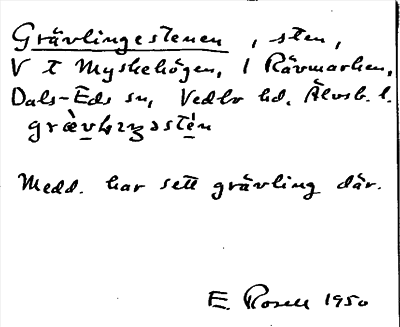 Grävlingestenen, sten,
V t Myskehögen, i Rävmarken,
Dals-Eds sn, Vedbo hd, Älvsb. l.
Medd. har sett grävling där.
E. Rosell 1950